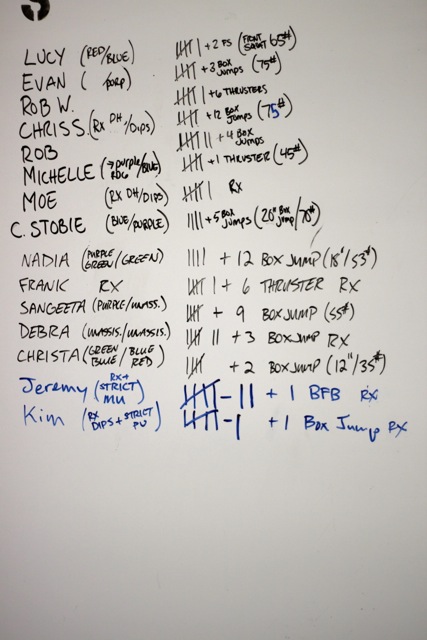 S
LUCY (RED/BLUE) 𝍸 | + 2 FS (FRONT SQUAT 65#)
EVAN ( /PURP) 𝍸 + 3 BOX JUMPS (75#)
ROB W. 𝍸 | + 6 THRUSTERS
CHRIS S. (RX DH/DIPS) 𝍸 + 12 BOX JUMPS (75#)
ROB 𝍸 || + 4 BOX JUMPS
MICHELLE (→ purple/BLUE) 𝍸 + 1 THRUSTER (45#)
MOE (RX DH/DIPS) 𝍸 | RX
C. STOBIE (BLUE/PURPLE) |||| + 5 BOX JUMPS (20" BOX JUMP/70#)
NADIA (PURPLE GREEN/GREEN) |||| + 12 BOX JUMP (18"/53#)
FRANK RX 𝍸 | + 6 THRUSTER RX
SANGEETA (PURPLE/UNASS.) 𝍸 + 9 BOX JUMP (55#)
DEBRA (UNASSIS./UNASSIS.) 𝍸 || + 3 BOX JUMP RX
CHRISTA (GREEN BLUE/BLUE RED) 𝍸 + 2 BOX JUMP (12"/35#)
Jeremy (RX + STRICT MU) 𝍸 - || + 1 BFB RX
Kim (RX DIPS + STRICT PU) 𝍸 - | + 1 Box Jump RX